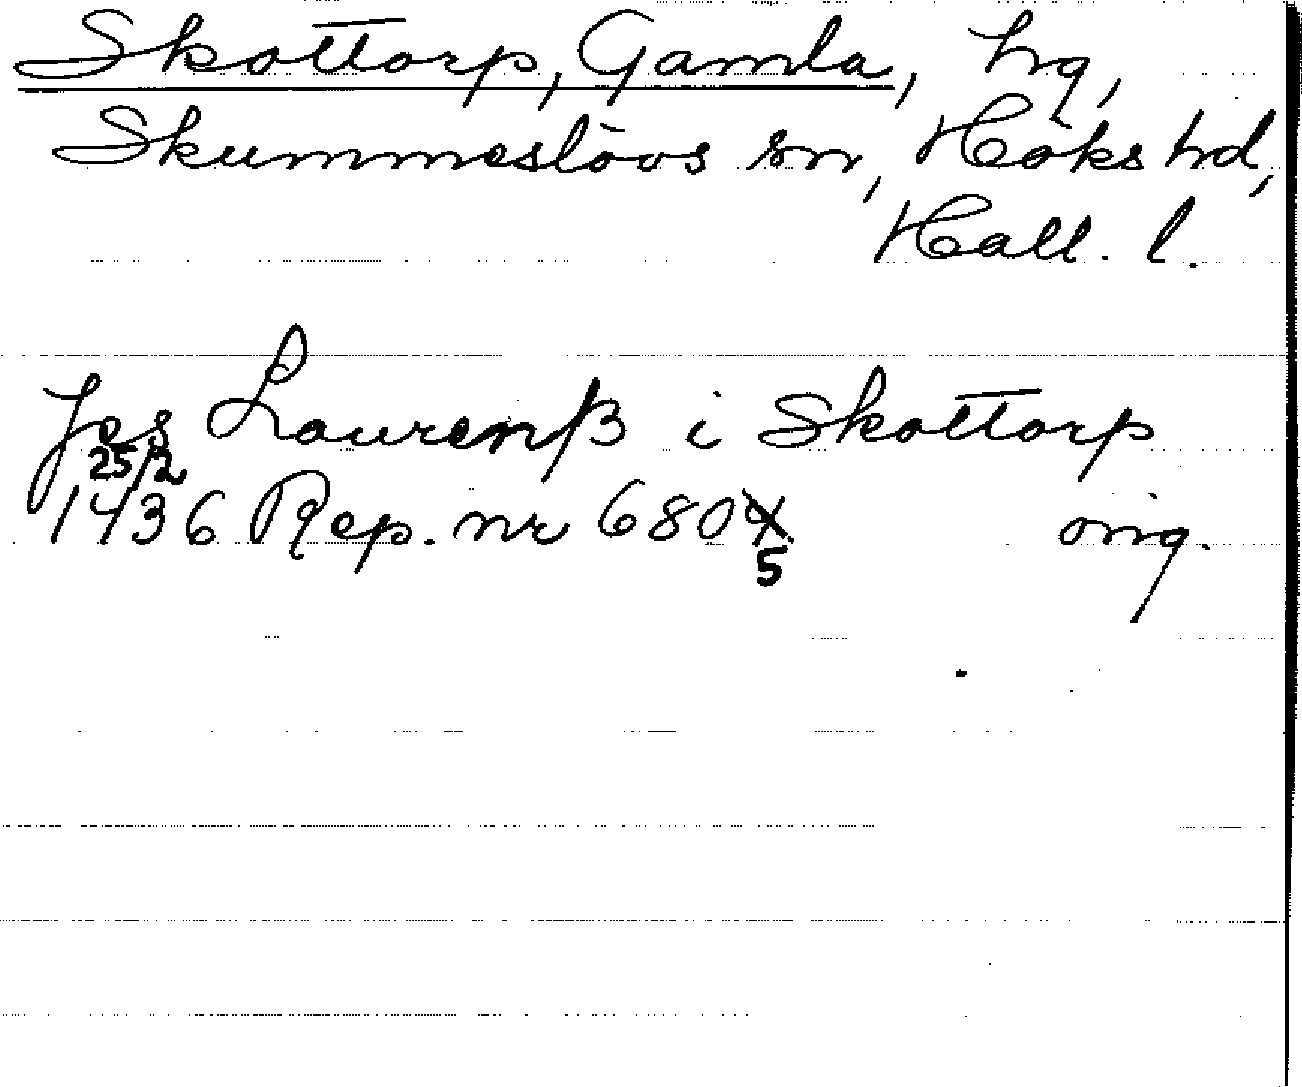 Skottorp, Gamla, hg,
Skummeslövs sn, Höks hd,
Hall. l.
Jes Laurenß i Skottorp
25/2
1436 Rep. nr 6804 orig.
5